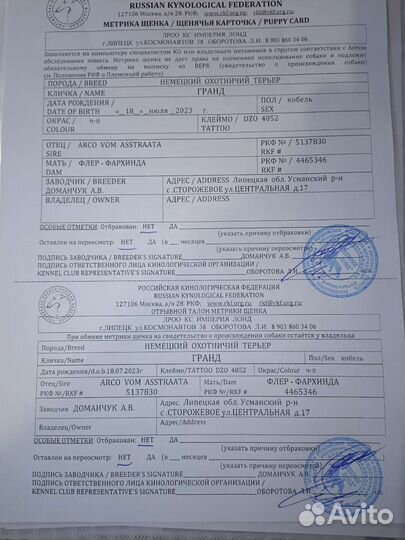 RUSSIAN KYNOLOGICAL FEDERATION
127106 Москва, а/я 28. РКФ. www.rkf.org.ru; rkf@rkf.org.ru
МЕТРИКА ЩЕНКА / ЩЕНЯЧЬЯ КАРТОЧКА / PUPPY CARD
ЛРОО КС ИМПЕРИЯ ЛОНД
г.ЛИПЕЦК ул.КОСМОНАВТОВ 38 ОБОРОТОВА Л.И. 8 903 860 34 06
Заполняется на компьютере специалистом КО или владельцем питомника в строгом соответствии с Актом
осмотра помета. Метрика не дает права на племенное использование собаки и подлежит
обязательному обмену на выписку из ВЕРК (свидетельство о происхождении собаки)
(см. Положения РКФ о Племенной работе)
ПОРОДА / BREED НЕМЕЦКИЙ ОХОТНИЧИЙ ТЕРЬЕР
КЛИЧКА / NAME ГРАНД
ДАТА РОЖДЕНИЯ / ПОЛ / кобель
DATE OF BIRTH «_18_» июля 2023 г. SEX
ОКРАС / ч-п КЛЕЙМО / DZO 4852
COLOUR TATTOO
ОТЕЦ / ARCO VOM ASSTRAATA РКФ № / 5137830
SIRE RKF #
МАТЬ / ФЛЕР - ФАРХИНДА РКФ № / 4465346
DAM RKF #
ЗАВОДЧИК / BREEDER АДРЕС / ADDRESS Липецкая обл. Усманский р-н
ДОМАНЧУК А.В. с .СТОРОЖЕВОЕ ул.ЦЕНТРАЛЬНАЯ д.17
ВЛАДЕЛЕЦ / OWNER АДРЕС / ADDRESS
ОСОБЫЕ ОТМЕТКИ: Отбракован: НЕТ ДА
(указать причину отбраковки)
Оставлен на переосмотр: НЕТ ДА (в ___ месяцев)
(указать причину переосмотра)
ПОДПИСЬ ЗАВОДЧИКА / BREEDER'S SIGNATURE ДОМАНЧУК А.В.
ПОДПИСЬ ОТВЕТСТВЕННОГО ЛИЦА КИНОЛОГИЧЕСКОЙ ОРГАНИЗАЦИИ /
KENNEL CLUB REPRESENTATIVE'S SIGNATURE ОБОРОТОВА Л.И.
РОССИЙСКАЯ КИНОЛОГИЧЕСКАЯ ФЕДЕРАЦИЯ
RUSSIAN KYNOLOGICAL FEDERATION
127106 Москва, а/я 28. РКФ. www.rkf.org.ru; rkf@rkf.org.ru
ОТРЫВНОЙ ТАЛОН МЕТРИКИ ЩЕНКА
ЛРОО КС ИМПЕРИЯ ЛОНД
г.ЛИПЕЦК ул.КОСМОНАВТОВ 38 ОБОРОТОВА Л.И. 8 903 860 34 06
При обмене метрики на свидетельство о происхождении собаки остаётся у владельца
Порода/Breed НЕМЕЦКИЙ ОХОТНИЧИЙ ТЕРЬЕР
Кличка/Name ГРАНД Пол/Sex кобель
Дата рождения/d.o.b.18.07.2023г Клеймо/TATTOO DZO 4852 Окрас/Colour ч-п
Отец/Sire ARCO VOM ASSTRAATA Мать/Dam ФЛЕР - ФАРХИНДА
РКФ №/RKF # 5137830 РКФ №/RKF # 4465346
Заводчик ДОМАНЧУК А.В. Адрес. Липецкая обл. Усманский р-н
с .СТОРОЖЕВОЕ ул.ЦЕНТРАЛЬНАЯ д.17
Владелец/Owner Адрес/Address
ОСОБЫЕ ОТМЕТКИ: Отбракован: НЕТ ДА
(указать причину отбраковки)
Оставлен на переосмотр: НЕТ ДА (в ___ месяцев)
(указать причину переосмотра)
ПОДПИСЬ ЗАВОДЧИКА / BREEDER'S SIGNATURE ДОМАНЧУК А.В.
ПОДПИСЬ ОТВЕТСТВЕННОГО ЛИЦА КИНОЛОГИЧЕСКОЙ ОРГАНИЗАЦИИ /
KENNEL CLUB REPRESENTATIVE'S SIGNATURE ОБОРОТОВА Л.И.
Avito